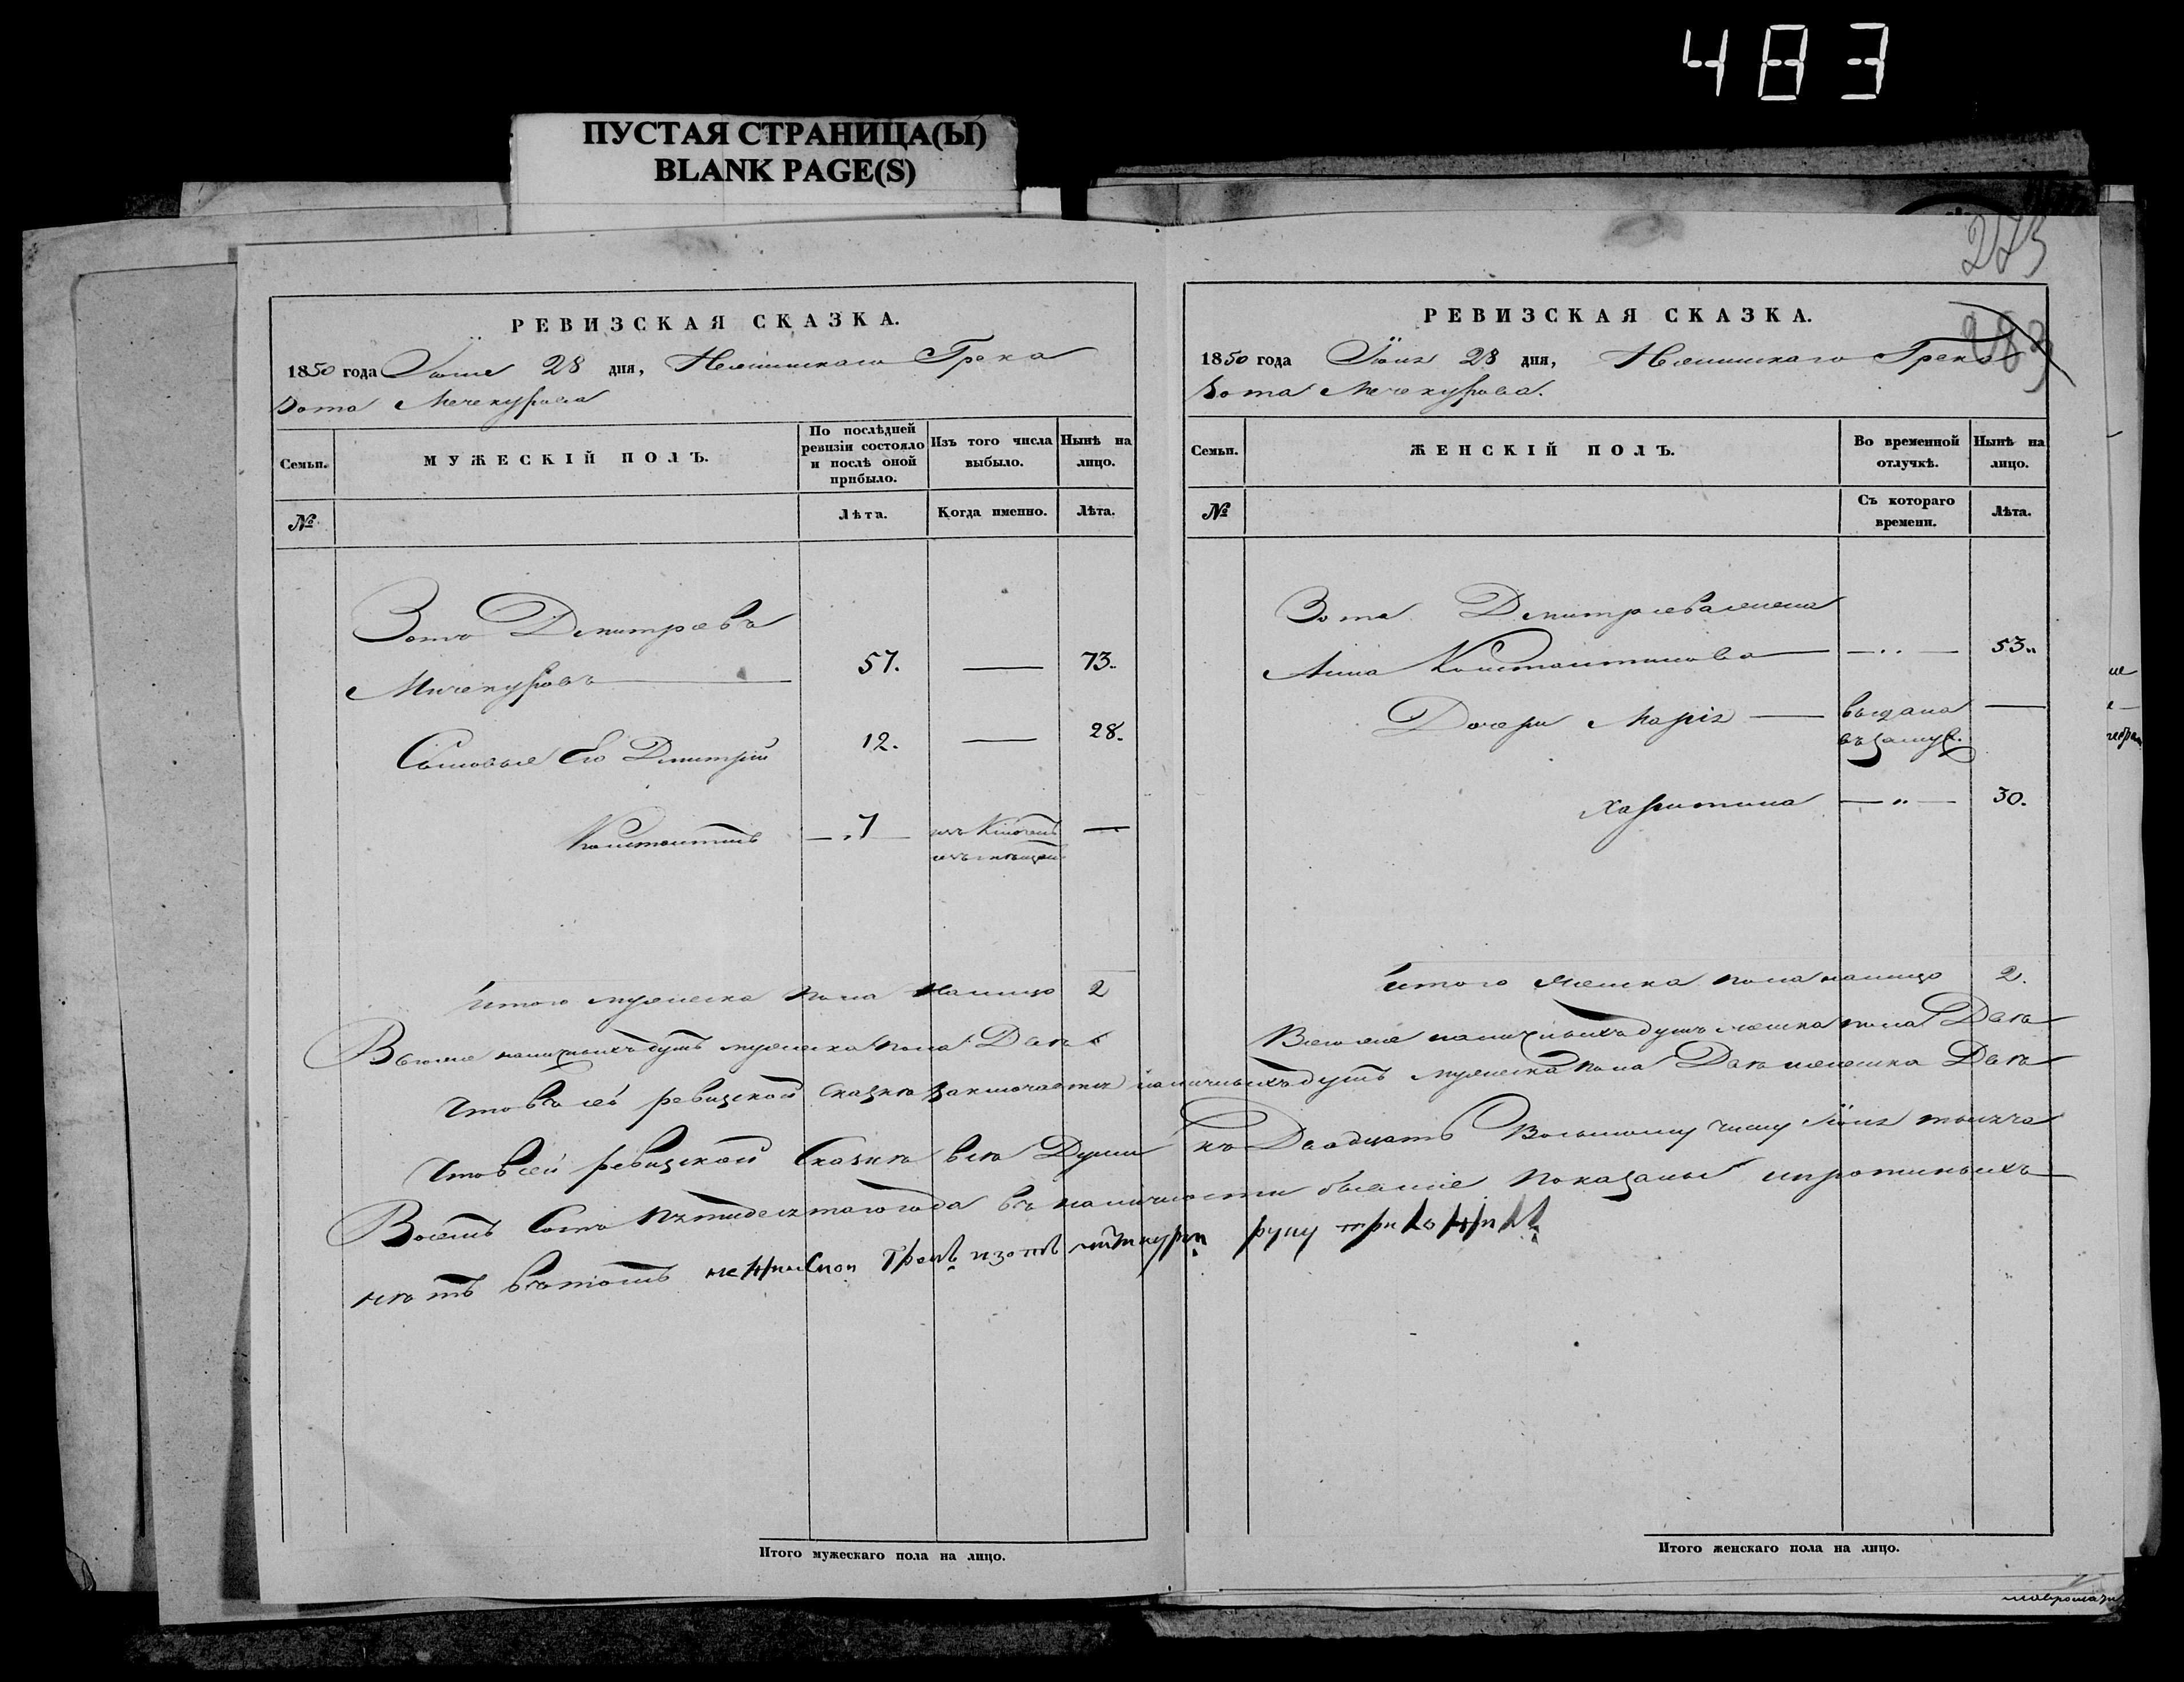 483
ПУСТАЯ СТРАНИЦА(Ы)
BLANK PAGE(S)
273
283
РЕВИЗСКАЯ СКАЗКА.
1850 года Іюня 28 дня, Нежинскаго Грека
Зота Мечекурова
Семьи.
МУЖЕСКІЙ ПОЛЪ.
По послѣдней ревизіи состояло и послѣ оной прибыло.
Изъ того числа выбыло.
Нынѣ на лицо.
№
Лѣта.
Когда именно.
Лѣта.
Зотъ Дмитріевъ
Мичекуровъ 57. — 73.
Сыновья Его Дмитрій 12. — 28.
Константинъ 7 —
Итого мужеска пола налицо 2
Всего же наличныхъ душъ мужеска пола Двѣ
РЕВИЗСКАЯ СКАЗКА.
1850 года Іюня 28 дня, Нежинскаго Грека
Зота Мечекурова.
Семьи.
ЖЕНСКІЙ ПОЛЪ.
Во временной отлучкѣ.
Нынѣ на лицо.
№
Съ котораго времени.
Лѣта.
Зота Дмитріева жена
Анна Константинова — 53
Дочери Марія — выдана —
въ замуж.
Харитина — 30.
Итого женска пола налицо 2.
Всего же наличныхъ душъ женска пола Двѣ
Что въ сей ревизской сказкѣ заключается наличныхъ душъ мужеска пола Двѣ и женска Двѣ
Что в сей ревизской Сказкѣ всѣ Души къ Двадцать Восьмому числу Іюня тысяча
Восемъ Сотъ пятидесятаго года въ наличности бывшіе показаны и прописныхъ
нѣтъ въ томъ
руку приложилъ
Итого мужескаго пола на лицо.
Итого женскаго пола на лицо.